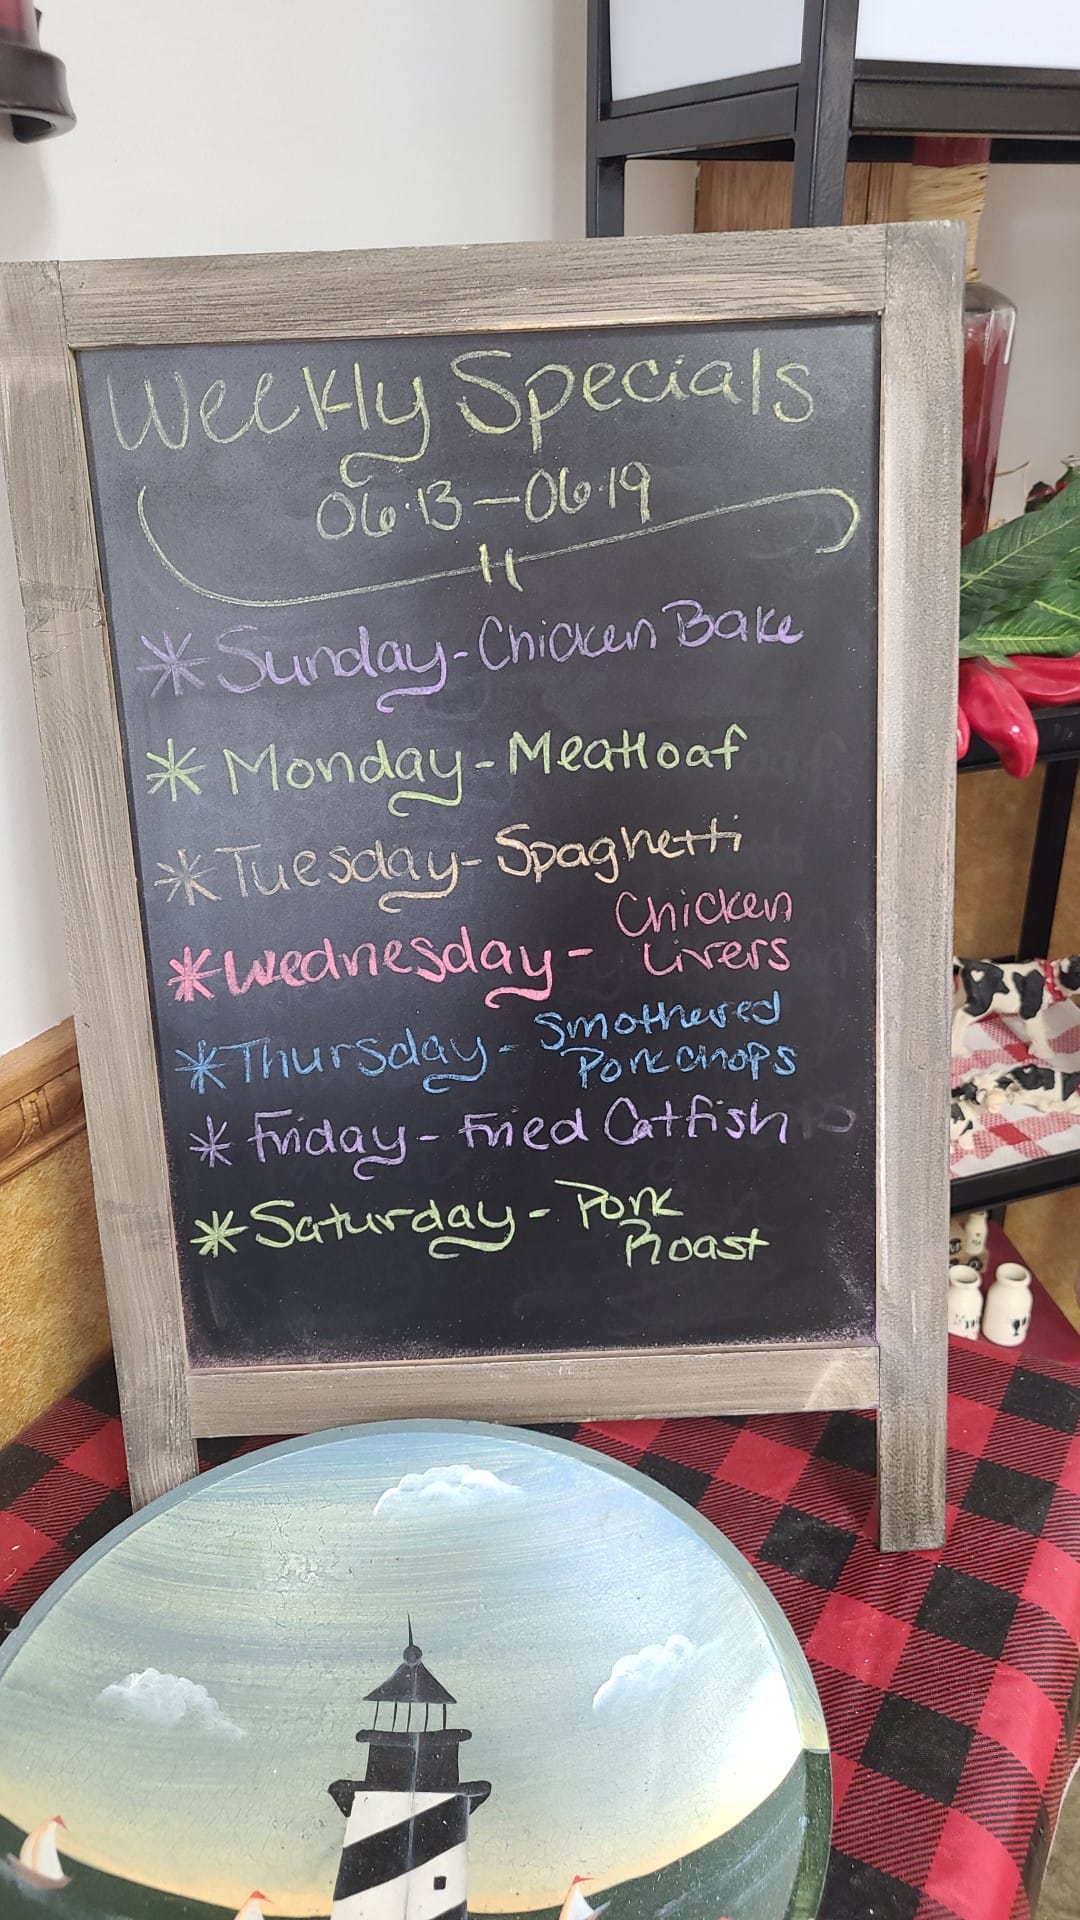 Weekly Specials
06·13-06·19
* Sunday - Chicken Bake
* Monday - Meatloaf
* Tuesday - Spaghetti
* Wednesday - Chicken
Livers
* Thursday - Smothered
Pork chops
* Friday - Fried Catfish
* Saturday - Pork
Roast